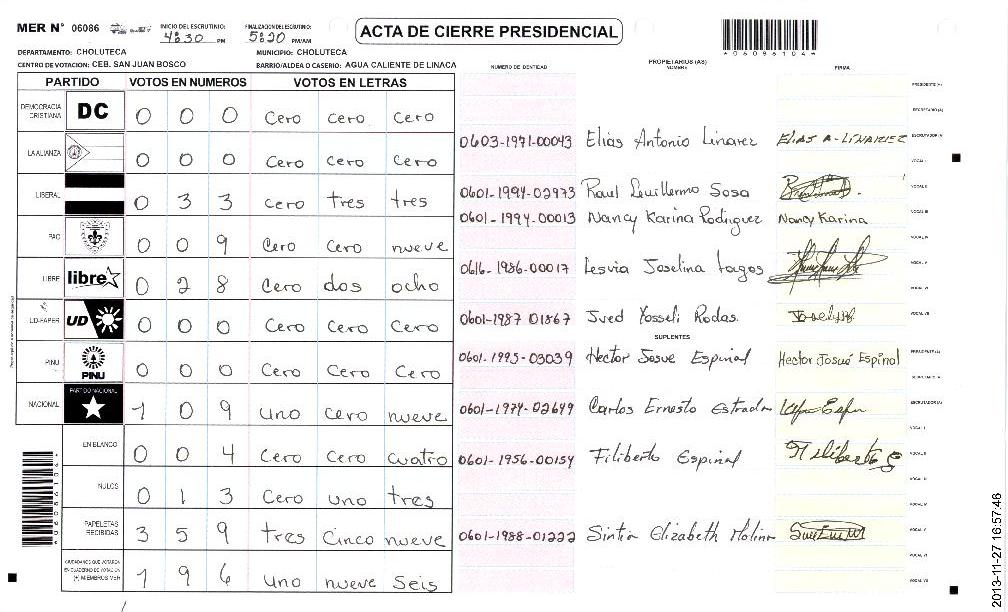 MER N° 06086 INICIO DEL ESCRUTINIO: 4:30 PM FINALIZACION DEL ESCRUTINIO: 5:20 PM/AM ACTA DE CIERRE PRESIDENCIAL
DEPARTAMENTO: CHOLUTECA MUNICIPIO: CHOLUTECA
CENTRO DE VOTACION: CEB. SAN JUAN BOSCO BARRIO/ALDEA O CASERIO: AGUA CALIENTE DE LINACA
NUMERO DE IDENTIDAD PROPIETARIOS (AS) NOMBRE FIRMA
PARTIDO VOTOS EN NUMEROS VOTOS EN LETRAS
DEMOCRACIA CRISTIANA DC 0 0 0 Cero cero Cero
LA ALIANZA 0 0 0 Cero Cero Cero
LIBERAL 0 3 3 cero tres tres
PAC 0 0 9 Cero Cero nueve
LIBRE libre 0 2 8 Cero dos ocho
UD-FAPER UD 0 0 0 Cero Cero Cero
PINU PINU 0 0 0 Cero Cero Cero
NACIONAL PARTIDO NACIONAL 1 0 9 uno Cero nueve
EN BLANCO 0 0 4 Cero Cero cuatro
NULOS 0 1 3 Cero uno tres
PAPELETAS RECIBIDAS 3 5 9 tres Cinco nueve
CIUDADANOS QUE VOTARON EN CUADERNO DE VOTACION (+) MIEMBROS MER 1 9 6 uno nueve Seis
PRESIDENTE (A)
SECRETARIO (A)
0603-1971-00043 Elias Antonio Linarez ELIAS A-LINAREZ ESCRUTADOR (A)
VOCAL I
0601-1994-02973 Raul Guillermo Sosa VOCAL II
0601-1994-00013 Nancy Karina Rodriguez Nancy Karina VOCAL III
VOCAL IV
0616-1986-00017 Lesvia Joselina Lagos VOCAL V
VOCAL VI
0601-1987 01867 Jved Yosseli Rodas. VOCAL VII
SUPLENTES
0601-1995-03039 Hector Josue Espinal Hector Josué Espinal PRESIDENTE (A)
SECRETARIO (A)
0601-1974-02649 Carlos Ernesto Estrada ESCRUTADOR (A)
VOCAL I
0601-1956-00154 Filiberto Espinal Filiberto E VOCAL II
VOCAL III
VOCAL IV
0601-1988-01222 Sintia Elizabeth Molina VOCAL V
VOCAL VI
VOCAL VII
2013-11-27 16:57:46